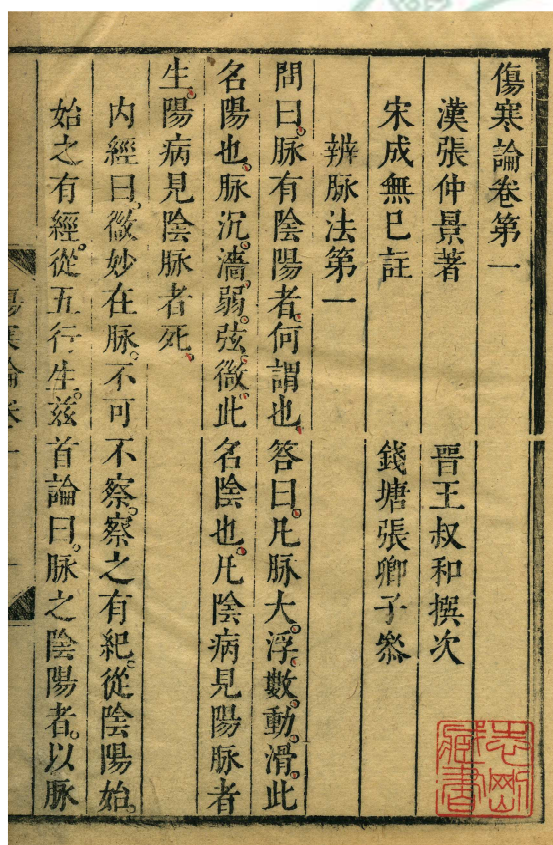 傷寒論卷第一
漢張仲景著 晋王叔和撰次
宋成無巳註 錢塘張卿子叅
辨脉法第一
問曰。脉有陰陽者。何謂也。答曰。凡脉大。浮。數。動。滑。此
名陽也。脉沉。濇。弱。弦。微。此名陰也。凡陰病見陽脉者
生。陽病見陰脉者死。
内經曰。微妙在脉。不可不察。察之有紀。從陰陽始。
始之有經。從五行生。兹首論曰。脉之陰陽者。以脉
傷寒論卷一